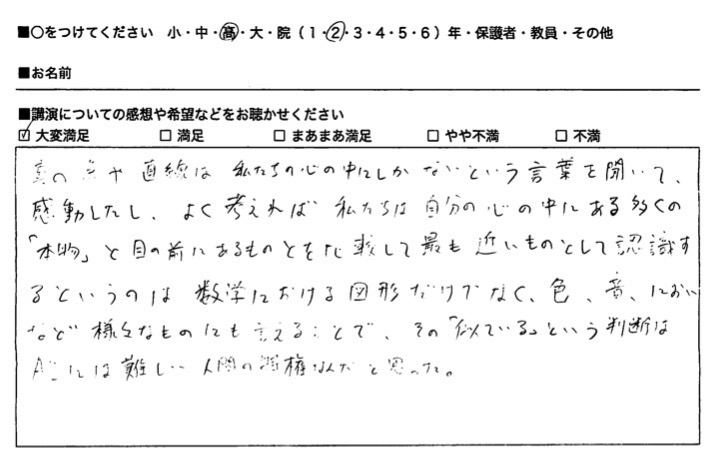 ■○をつけてください 小・中・高・大・院（1・2・3・4・5・6）年・保護者・教員・その他
■お名前
■講演についての感想や希望などをお聴かせください
☑ 大変満足 □ 満足 □ まあまあ満足 □ やや不満 □ 不満
真の点や直線は 私たちの心の中にしかないという言葉を聞いて、
感動したし、よく考えれば 私たちは自分の心の中にある多くの
「本物」と目の前にあるものとを比較して最も近いものとして認識す
るというのは 数学における図形だけでなく、色、音、におい
など様々なものにも言えることで、その「似ている」という判断は
AIには難しい 人間の特権なんだと思った。